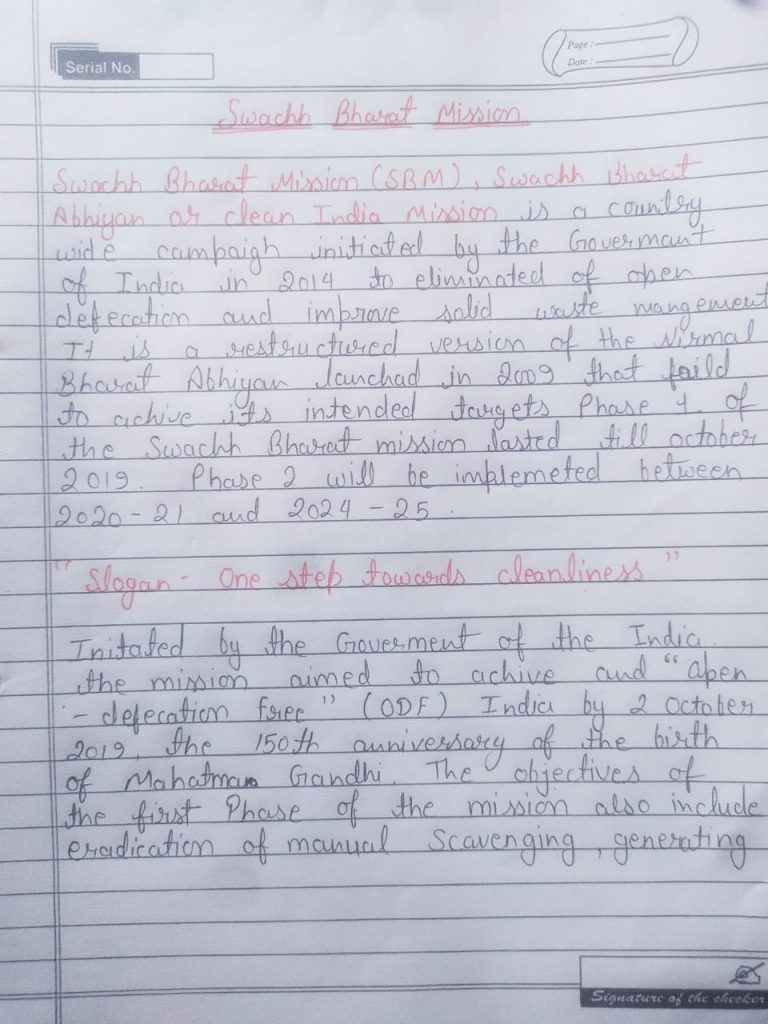 Serial No.
Page :
Date :
Swachh Bharat Mission
Swachh Bharat Mission (SBM), Swachh Bharat
Abhiyan or clean India Mission is a country
wide campaigh initiated by the Govermant
of India in 2014 to eliminated of open
defecation and improve solid waste mangement
It is a restructured version of the Nirmal
Bharat Abhiyan launchad in 2009 that faild
to achive its intended targets Phase 1 of
the Swachh Bharat mission lasted till october
2019. Phase 2 will be implemeted between
2020-21 and 2024-25.
"Slogan - One step towards cleanliness"
Initated by the Goverment of the India.
the mission aimed to achive and "open
- defecation free" (ODF) India by 2 October
2019, the 150th anniversary of the birth
of Mahatma Gandhi. The objectives of
the first Phase of the mission also include
eradication of manual Scavenging, generating
Signature of the checker